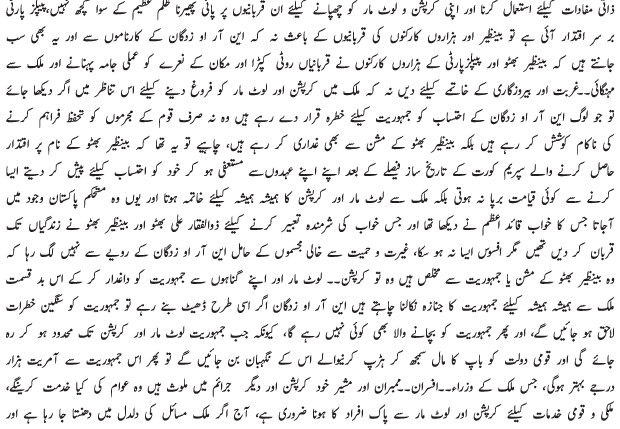 ذاتی مفادات کیلئے استعمال کرنا اور اپنی کرپشن و لوٹ مار کو چھپانے کیلئے ان قربانیوں پر پانی پھیرنا ظلم عظیم کے سوا کچھ نہیں، پیپلز پارٹی
بر سر اقتدار آئی ہے تو بینظیر اور ہزاروں کارکنوں کی قربانیوں کے باعث نہ کہ این آر او زدگان کے کارناموں سے اور یہ بھی سب
جانتے ہیں کہ بینظیر بھٹو اور پیپلز پارٹی کے ہزاروں کارکنوں نے قربانیاں روٹی کپڑا اور مکان کے نعرے کو عملی جامہ پہنانے اور ملک سے
مہنگائی۔۔غربت اور بیروزگاری کے خاتمے کیلئے دیں نہ کہ ملک میں کرپشن اور لوٹ مار کو فروغ دینے کیلئے اس تناظر میں اگر دیکھا جائے
تو جو لوگ این آر او زدگان کے احتساب کو جمہوریت کیلئے خطرہ قرار دے رہے ہیں وہ نہ صرف قوم کے مجرموں کو تحفظ فراہم کرنے
کی ناکام کوشش کر رہے ہیں بلکہ بینظیر بھٹو کے مشن سے بھی غداری کر رہے ہیں، چاہیے تو یہ تھا کہ بینظیر بھٹو کے نام پر اقتدار
حاصل کرنے والے سپریم کورٹ کے تاریخ ساز فیصلے کے بعد اپنے اپنے عہدوں سے مستعفی ہو کر خود کو احتساب کیلئے پیش کر دیتے ایسا
کرنے سے کوئی قیامت برپا نہ ہوتی بلکہ ملک سے لوٹ مار اور کرپشن کا ہمیشہ ہمیشہ کیلئے خاتمہ ہوتا اور یوں وہ مستحکم پاکستان وجود میں
آجاتا جس کا خواب قائد اعظم نے دیکھا تھا اور جس خواب کی شرمندہ تعبیر کرنے کیلئے ذوالفقار علی بھٹو اور بینظیر بھٹو نے زندگیاں تک
قربان کر دیں تھیں مگر افسوس ایسا نہ ہو سکا، غیرت و حمیت سے خالی مجسموں کے حامل این آر او زدگان کے رویے سے نہیں لگ رہا کہ
وہ بینظیر بھٹو کے مشن یا جمہوریت سے مخلص ہیں وہ تو کرپشن۔۔ لوٹ مار اور اپنے گناہوں سے جمہوریت کو داغدار کر کے اس بد قسمت
ملک سے ہمیشہ ہمیشہ کیلئے جمہوریت کا جنازہ نکالنا چاہتے ہیں این آر او زدگان اگر اسی طرح ڈھیٹ بنے رہے تو جمہوریت کو سنگین خطرات
لاحق ہو جائیں گے، اور پھر جمہوریت کو بچانے والا بھی کوئی نہیں رہے گا، کیونکہ جب جمہوریت لوٹ مار اور کرپشن تک محدود ہو کر رہ
جائے گی اور قومی دولت کو باپ کا مال سمجھ کر ہڑپ کرنیوالے اس کے نگہبان بن جائیں گے تو پھر اس جمہوریت سے آمریت ہزار
درجے بہتر ہوگی، جس ملک کے وزراء۔۔افسران۔۔ممبران اور مشیر خود کرپشن اور دیگر جرائم میں ملوث ہیں وہ عوام کی کیا خدمت کرینگے،
ملکی و قومی خدمات کیلئے کرپشن اور لوٹ مار سے پاک افراد کا ہونا ضروری ہے، آج اگر ملک مسائل کی دلدل میں دھنستا جا رہا ہے اور